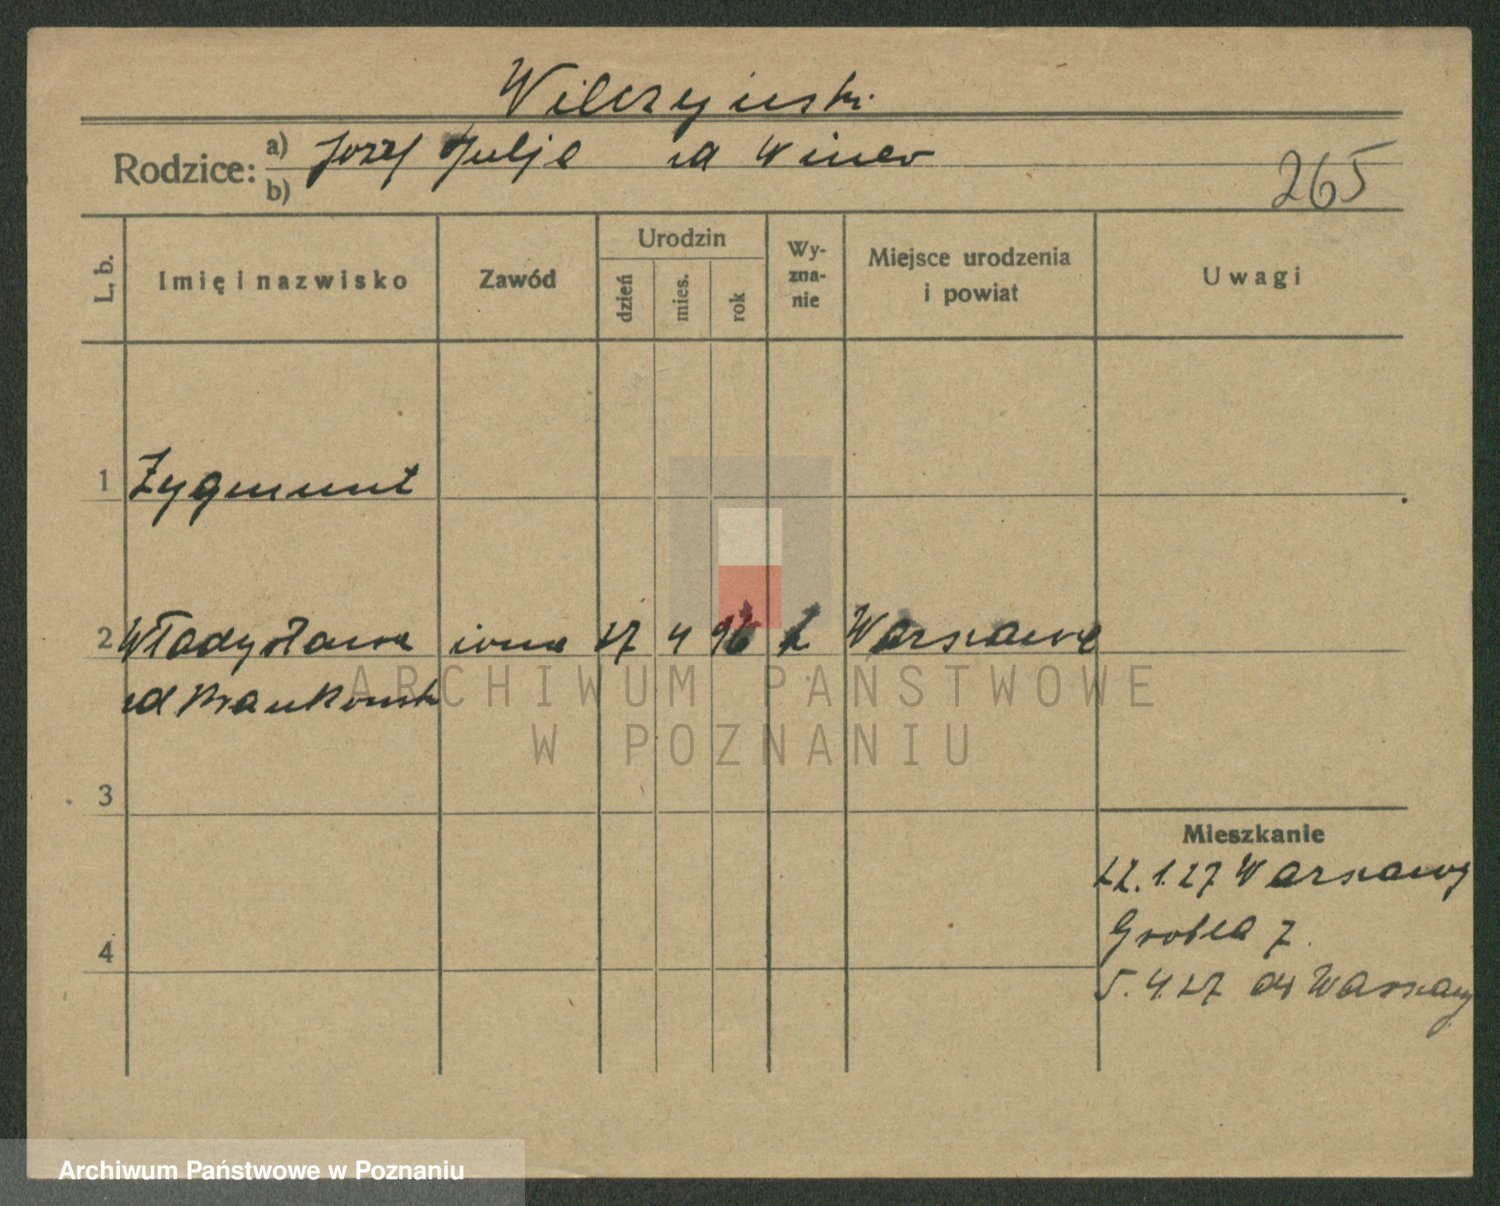 Wilczyński
Rodzice: a) Józef Julja zd Winer
b)
265
L. b.
Imię i nazwisko
Zawód
Urodzin
dzień
mies.
rok
Wy-
zna-
nie
Miejsce urodzenia
i powiat
Uwagi
1 Zygmunt
2 Władysława żona 27 4 96 Warszawa
zd
3
4
Mieszkanie
22.1.27 Warszawy
Grobla 7
5.4.27 do Warszawy
ARCHIWUM PAŃSTWOWE
W POZNANIU
Archiwum Państwowe w Poznaniu